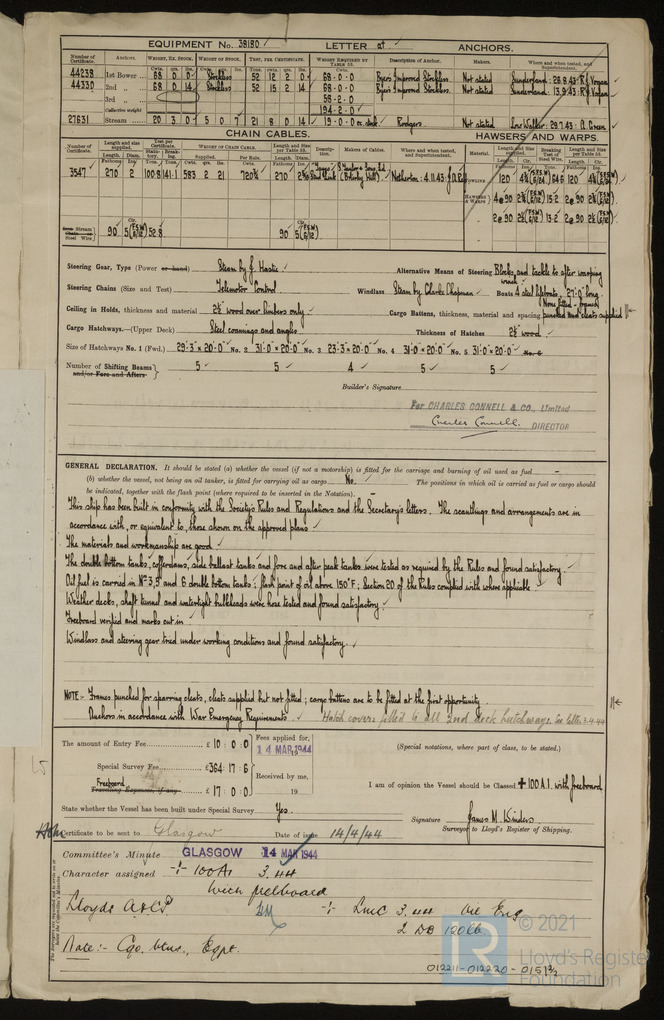 EQUIPMENT No. 38180 LETTER at ANCHORS.
Number of Certificate. Anchors. WEIGHT, EX. STOCK. WEIGHT OF STOCK. TEST, PER CERTIFICATE. WEIGHT REQUIRED BY TABLE 53. Description of Anchor. Makers. Where and when tested, and Superintendent.
44238 1st Bower 68 0 0 Stockless 52 12 2 0 68-0-0 Byers Improved Stockless. Not stated Sunderland: 28.8.43
44330 2nd " 68 0 14 Stockless 52 15 2 14 68-0-0 Byers Improved Stockless. Not stated Sunderland: 13.9.43
3rd " 58-2-0
Collective weight 194-2-0
27631 Stream 20 3 0 5 0 7 21 8 0 14 19-0-0 ex. stock Rodgers. Not stated Low Walker: 29.7.43 A. Green
CHAIN CABLES. HAWSERS AND WARPS.
Number of Certificate. Length and size supplied. Test per Certificate. WEIGHT OF CHAIN CABLE. Length and Size per Table 53. Description. Makers of Cables. Where and when tested, and Superintendent. Material. Length and Size supplied. Breaking Test of Steel Wire. Length and Size per Table 53.
3547 270 2 100.8 141.1 583 2 21 720¾ 270 Netherton: 4.11.43 120 64.6 120
HAWSERS & WARPS 4@90 15.2 2@90
2@90 13.2 2@90
Stream Steel Wire 90 5 52.8 90 5
Steering Gear, Type (Power or hand) Steam by J. Hastie Alternative Means of Steering Blocks and tackle to after warping winch
Steering Chains (Size and Test) Telemotor Control Windlass Steam by Clarke Chapman Boats 4 steel lifeboats, 27'-0" long.
Ceiling in Holds, thickness and material 2½" wood over limbers only Cargo Battens, thickness, material and spacing None fitted - frames punched and cleats supplied
Cargo Hatchways.—(Upper Deck) Steel coamings and angles Thickness of Hatches 2½" wood.
Size of Hatchways No. 1 (Fwd.) 29'-3" × 20'-0" No. 2 31'-0" × 20'-0" No. 3 23'-3" × 20'-0" No. 4 31'-0" × 20'-0" No. 5 31'-0" × 20'-0" No. 6
Number of Shifting Beams and/or Fore and Afters 5 5 4 5 5
Builder's Signature
For CHARLES CONNELL & CO., Limited
Charles Connell. DIRECTOR
GENERAL DECLARATION. It should be stated (a) whether the vessel (if not a motorship) is fitted for the carriage and burning of oil used as fuel –
(b) whether the vessel, not being an oil tanker, is fitted for carrying oil as cargo No. The positions in which oil is carried as fuel or cargo should
be indicated, together with the flash point (where required to be inserted in the Notation). –
This ship has been built in conformity with the Society's Rules and Regulations and the Secretary's letters. The scantlings and arrangements are in
accordance with, or equivalent to, those shown on the approved plans
The materials and workmanship are good
The double bottom tanks, cofferdams, side ballast tanks and fore and after peak tanks were tested as required by the Rules and found satisfactory.
Oil fuel is carried in Nos 3, 5 and 6 double bottom tanks; flash point of oil above 150°F; Section 20 of the Rules complied with where applicable
Weather decks, shaft tunnel and watertight bulkheads were hose tested and found satisfactory.
Freeboard verified and marks cut in
Windlass and steering gear tried under working conditions and found satisfactory.
NOTE:- Frames punched for sparring cleats, cleats supplied but not fitted; cargo battens are to be fitted at the first opportunity
Anchors in accordance with War Emergency Requirements. Hatch covers fitted to all 2nd deck hatchways. See letter 3.4.44
The amount of Entry Fee £ 10 : 0 : 0 Fees applied for, 14 MAR 1944 (Special notations, where part of class, to be stated.)
Special Survey Fee £364 : 17 : 6 Received by me,
Freeboard Travelling Expenses, if any £ 17 : 0 : 0 19 I am of opinion the Vessel should be Classed +100 A.1. with freeboard
State whether the Vessel has been built under Special Survey Yes. Signature James M. Winders
Surveyor to Lloyd's Register of Shipping.
Certificate to be sent to Glasgow Date of issue 14/4/44
Committee's Minute GLASGOW 14 MAR 1944
Character assigned + 100A1 3.44
with freeboard
Lloyds A&CP + LMC 3.44 Oil Eng
2 DB 120lb
Note :- Cgo. Bttns., Eqpt.
© 2021
LR
Lloyd's Register
Foundation
012211-012220-0151 2/2